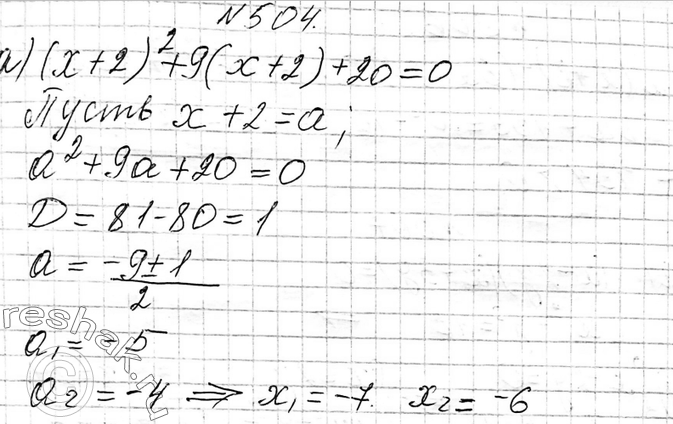 №504.
а) (x+2)²+9(x+2)+20=0
Пусть x+2=a;
a²+9a+20=0
D=81-80=1
a = -9±1/2
a₁=-5
a₂=-4 ⇒ x₁=-7. x₂=-6
reshak.ru